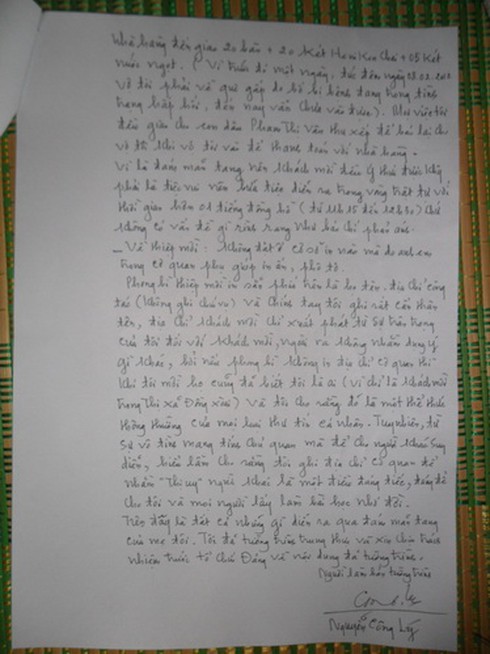 Nhà hàng đến giao 20 bàn + 20 két Heniken chai + 05 két
nước ngọt. (Vì trước đó một ngày, tức đêm ngày
vợ tôi phải về quê gấp do bố bị bệnh đang trong tình
trạng hấp hối, đến nay vẫn chưa vào
đều giao cho em dâu Phạm Thị Vân thu xếp để
tôi khi vợ tôi vào để thanh toán với nhà hàng.
Vì là đám mãn tang nên khách mời đến
phải là tiệc vui nên bữa tiệc diễn ra trong vòng trật tự với
thời gian hơn 01 tiếng đồng hồ (từ 11h15 đến 12h30) chứ
không có vấn đề gì rình rang như báo chí phản ánh.
- Về thiệp mời: không đặt ở cơ sở in nào mà do anh em
trong cơ quan phụ giúp in ấn, phô tô.
Phong bì thiệp mời in sẵn phía trên là họ tên, địa chỉ công
tác (không ghi chức vụ) và chính tay tôi ghi rất cẩn thận
tên, địa chỉ khách mời chỉ xuất phát từ sự trân trọng
của tôi đối với khách mời, ngoài ra không nhằm dụng ý
gì khác, bởi nếu phong bì không in địa chỉ cơ quan thì
khi tôi mời họ cũng đã biết tôi là ai (vì chỉ là khách mời
trong thị xã Đồng Xoài) và tôi cho rằng đó là một thể thức
thông thường của mọi loại thư tín cá nhân. Tuy nhiên, từ
sự vô tình mang tính chủ quan mà để cho người khác suy
diễn, hiểu lầm cho rằng tôi ghi địa chỉ cơ quan để
nhằm "thị uy" người khác là một điều đáng tiếc, đáng để
cho tôi và mọi người lấy làm bài học nhớ đời.
Trên đây là tất cả những gì diễn ra qua đám mãn tang
của mẹ tôi. Tôi đã tường trình trung thực và xin chịu trách
nhiệm trước tổ chức Đảng về nội dung đã tường trình.
Người làm bản tường trình
Nguyễn Công Lý